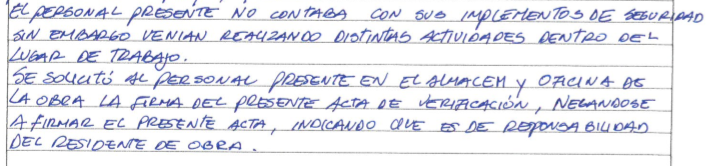 EL PERSONAL PRESENTE NO CONTABA CON SUS IMPLEMENTOS DE SEGURIDAD
SIN EMBARGO VENIAN REALIZANDO DISTINTAS ACTIVIDADES DENTRO DEL
LUGAR DE TRABAJO.
SE SOLICITÓ AL PERSONAL PRESENTE EN EL ALMACEM Y OFICINA DE
LA OBRA LA FIRMA DEL PRESENTE ACTA DE VERIFICACIÓN, NEGANDOSE
A FIRMAR EL PRESENTE ACTA, INDICANDO QUE ES DE REPONSABILIDAD
DEL RESIDENTE DE OBRA.